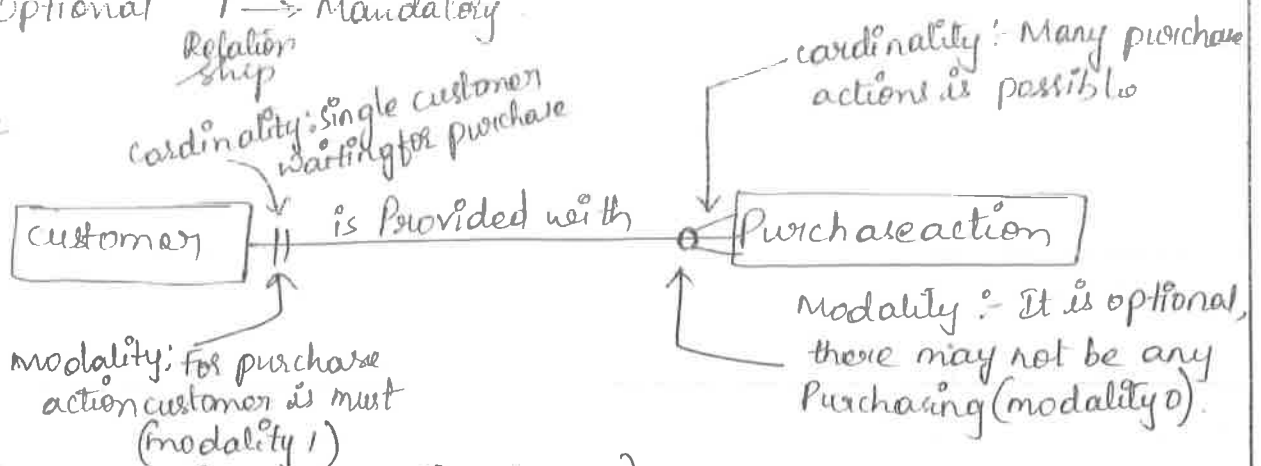 Optional 1 → Mandatory
Relation
ship
cardinality: Single customer
waiting for purchase
cardinality: Many purchase
actions is possible
customer
is Provided with
Purchase action
modality: For purchase
action customer is must
(modality 1)
Modality :- It is optional,
there may not be any
Purchasing (modality 0).